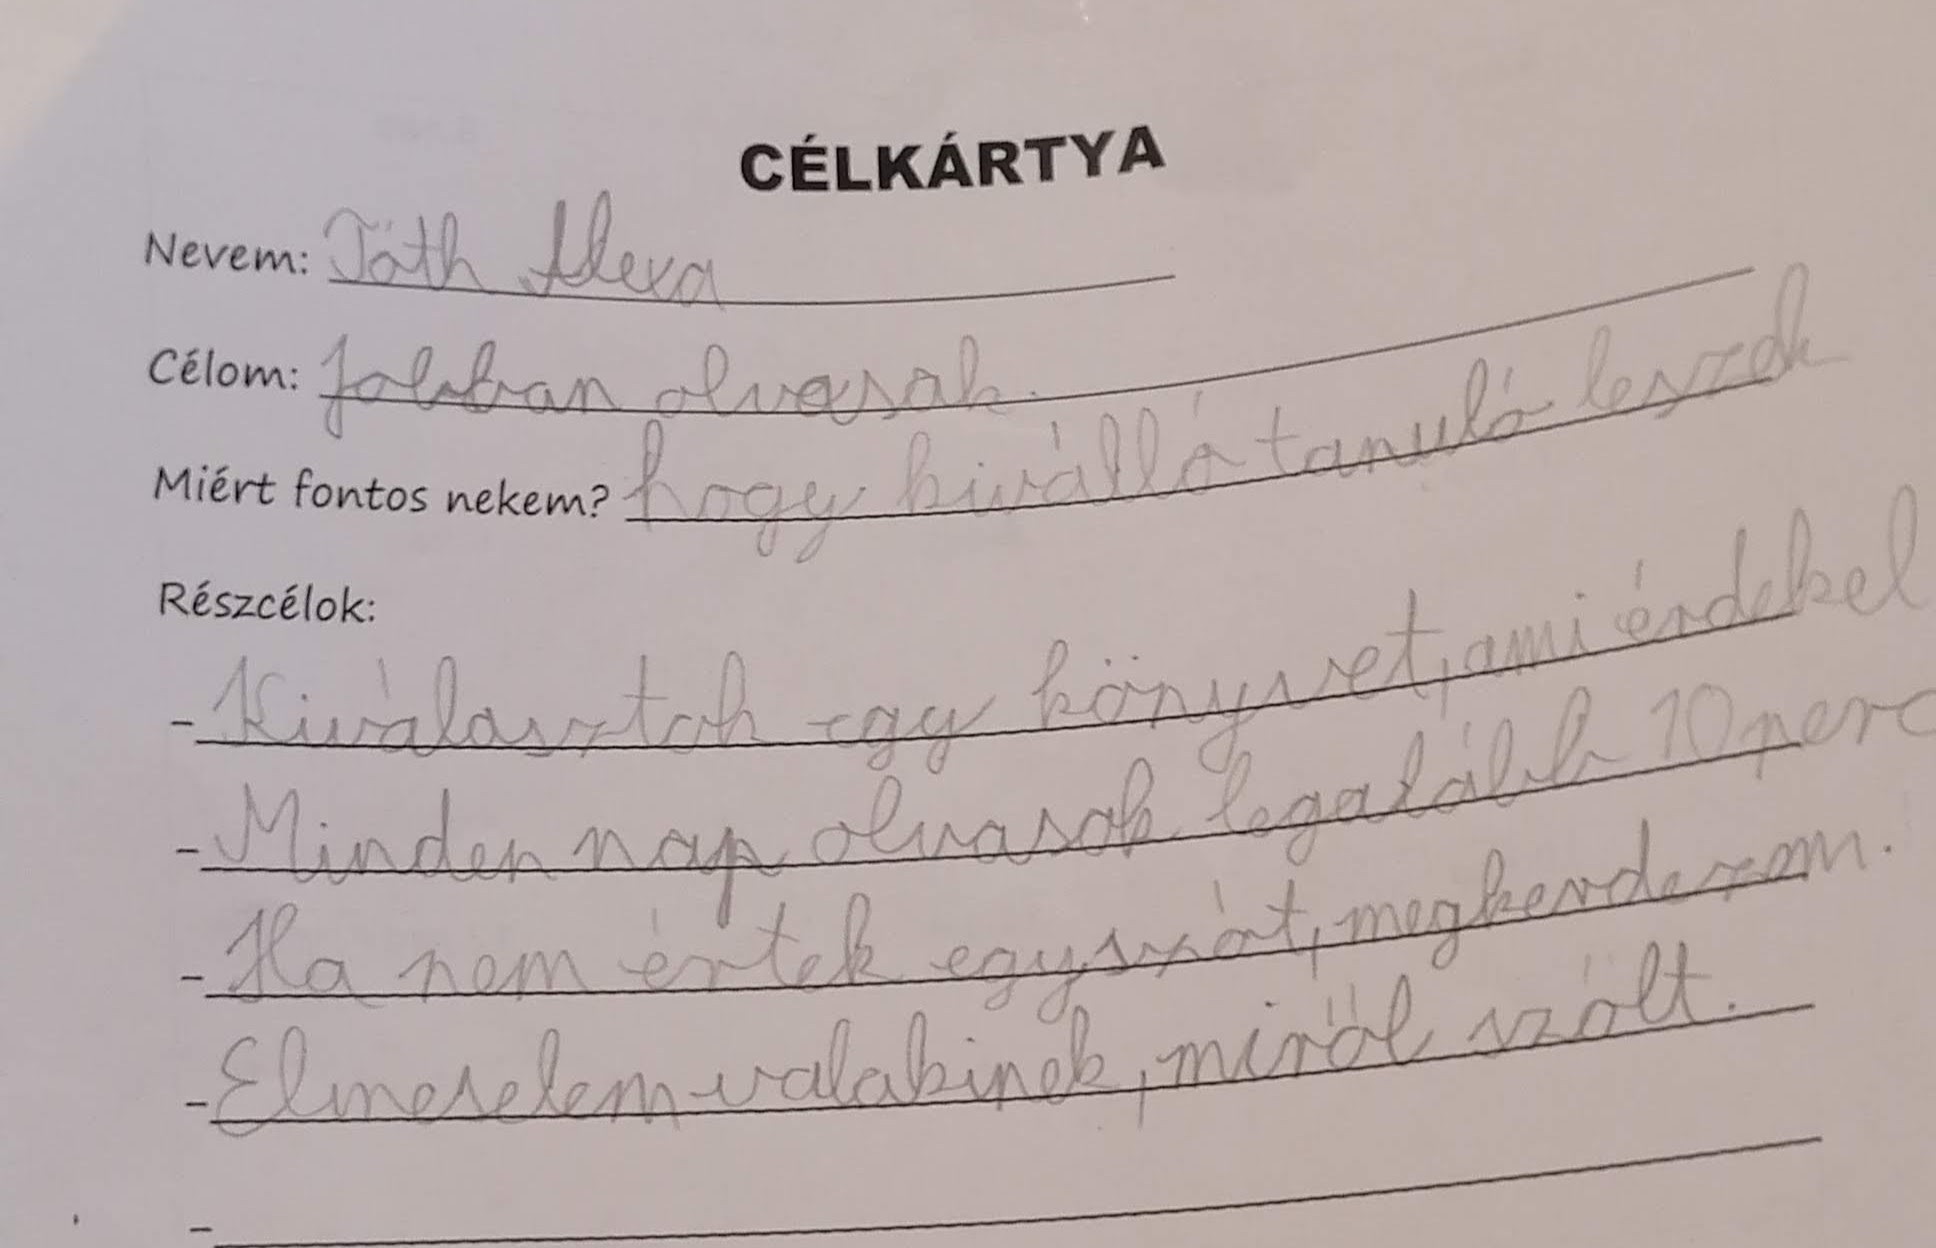 CÉLKÁRTYA
Nevem: Tóth Alexa
Célom: Jobban olvasok.
Miért fontos nekem? hogy kiválló tanuló leszek
Részcélok:
- Kiválasztok egy könyvet, ami érdekel
- Minden nap olvasok legalább 10 perc
- Ha nem értek egy szót, megkerdezem.
- Elmeselem valakinek, miről szólt.
-